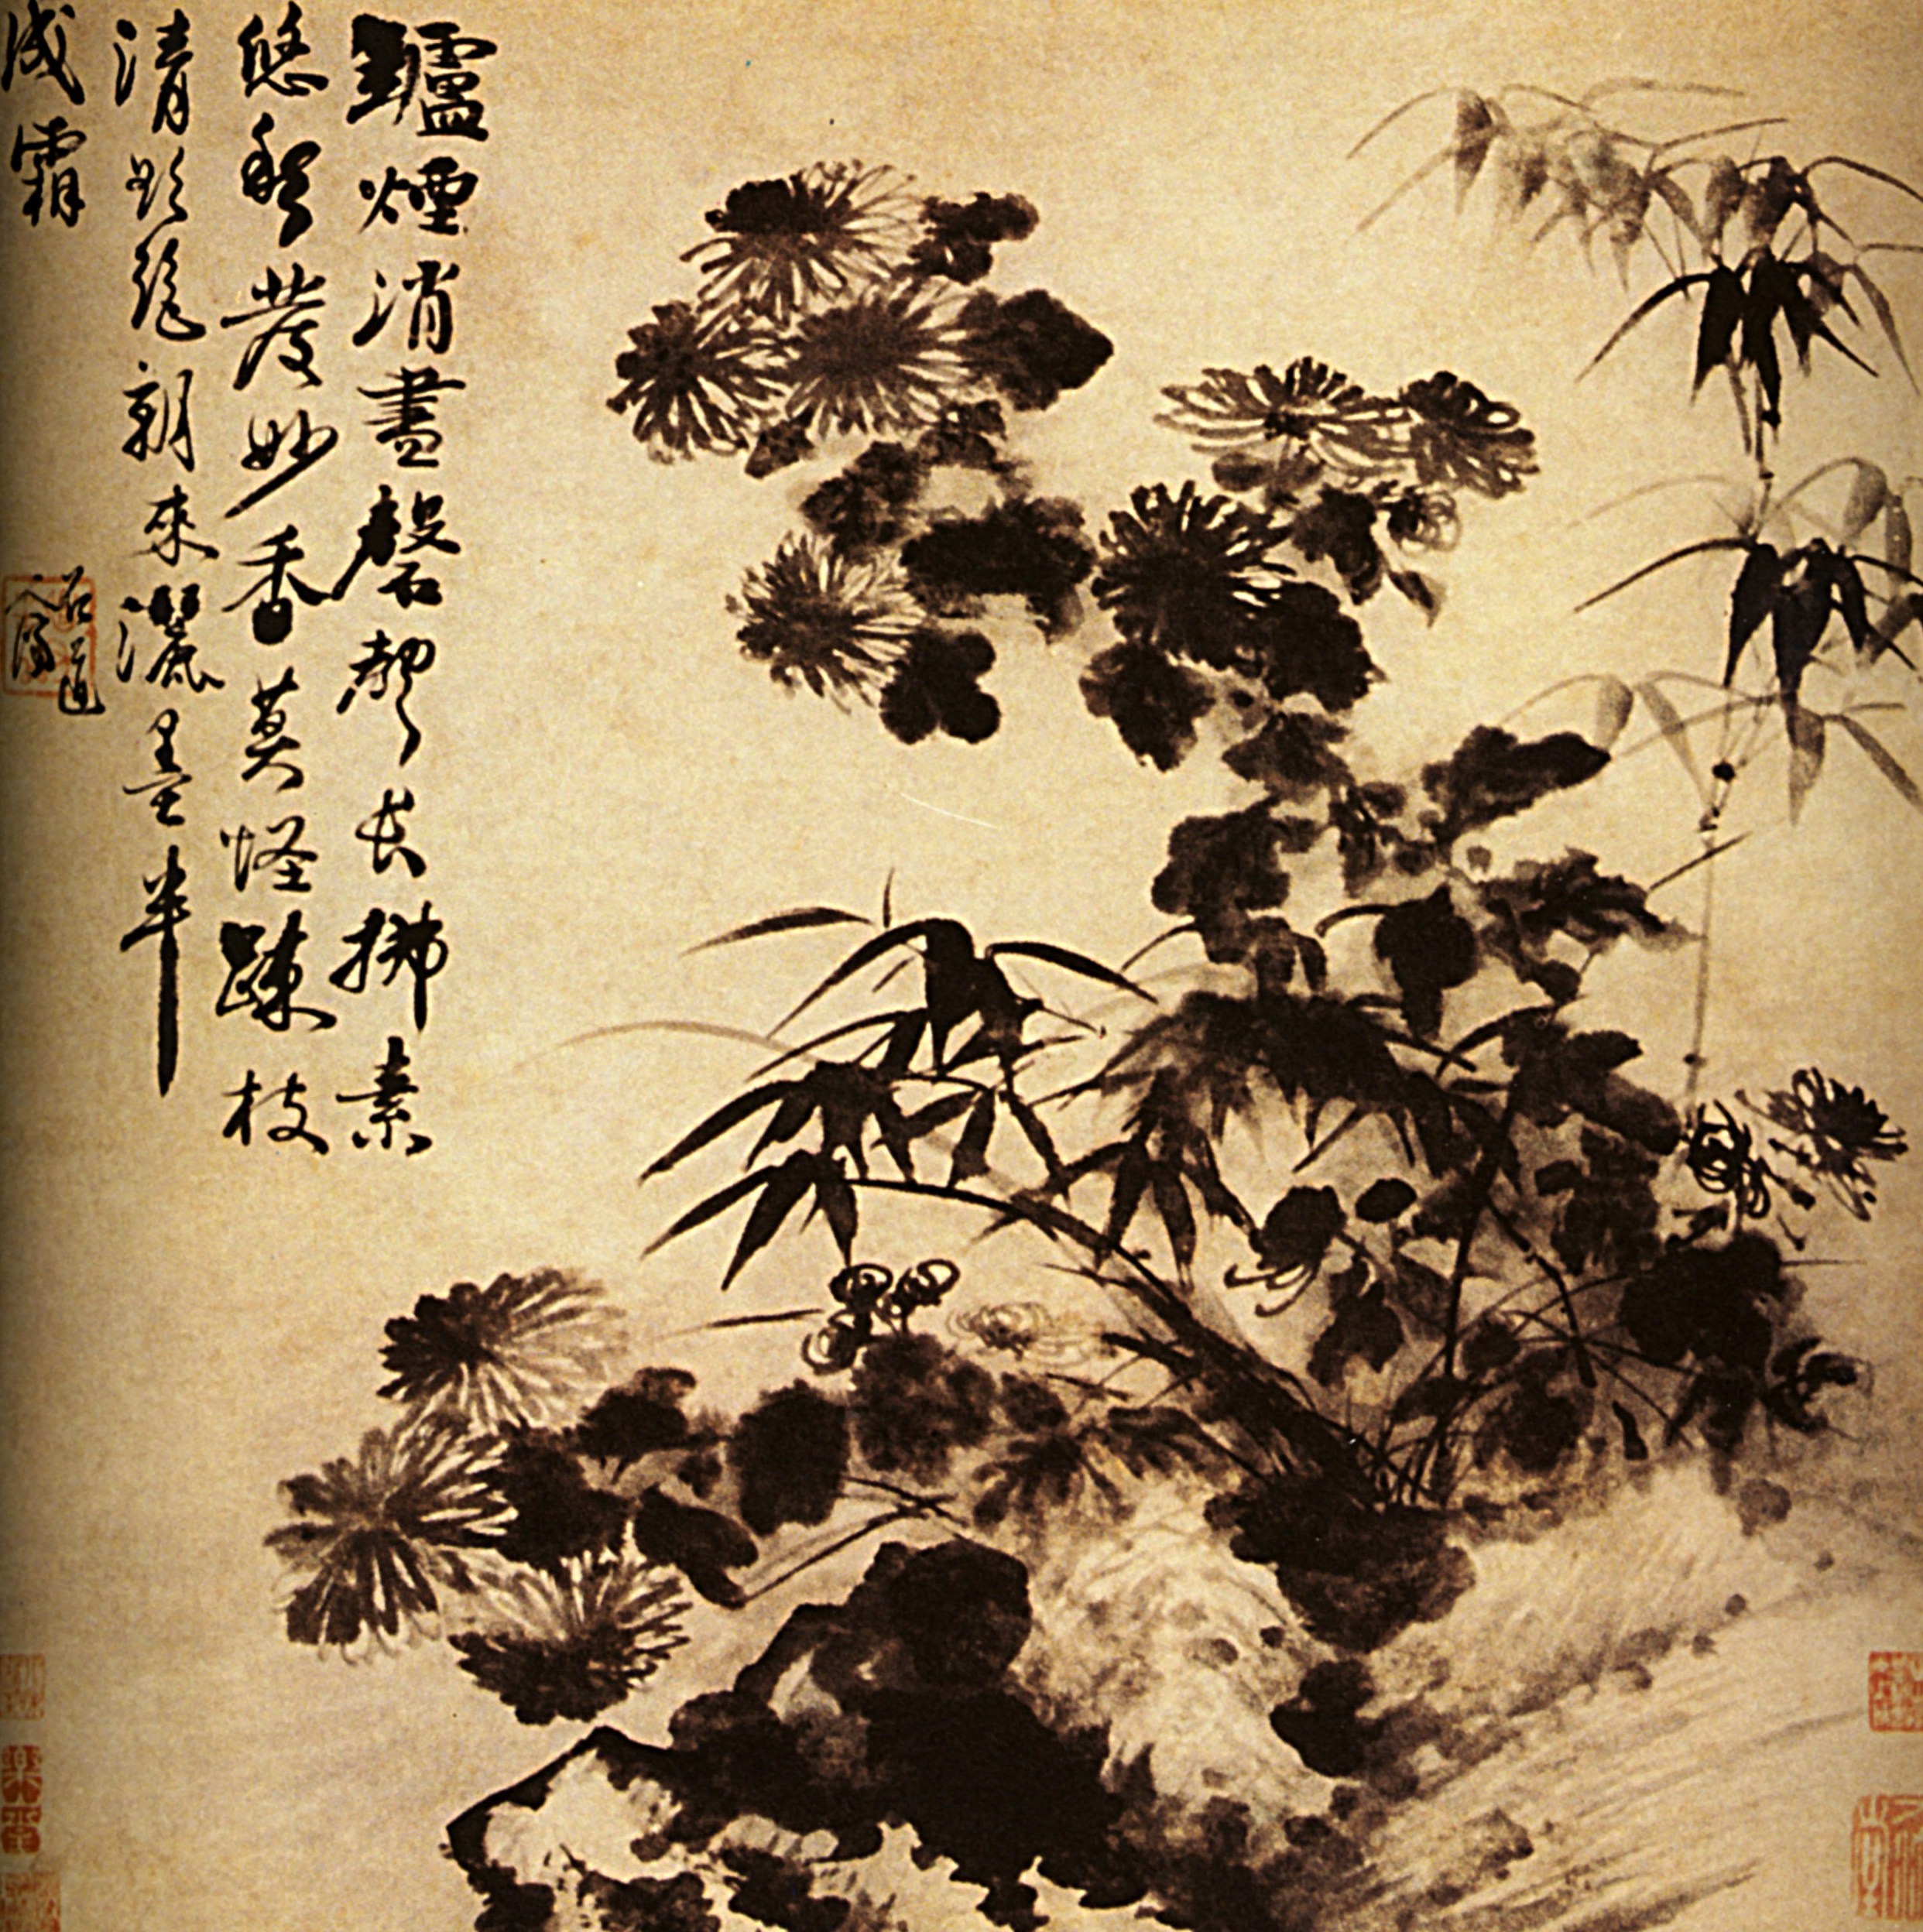 鑪煙消盡磬聲長拂素
悠然發妙香莫怪疎枝
清影瘦朝來灑墨半
成霜
石道
人濟